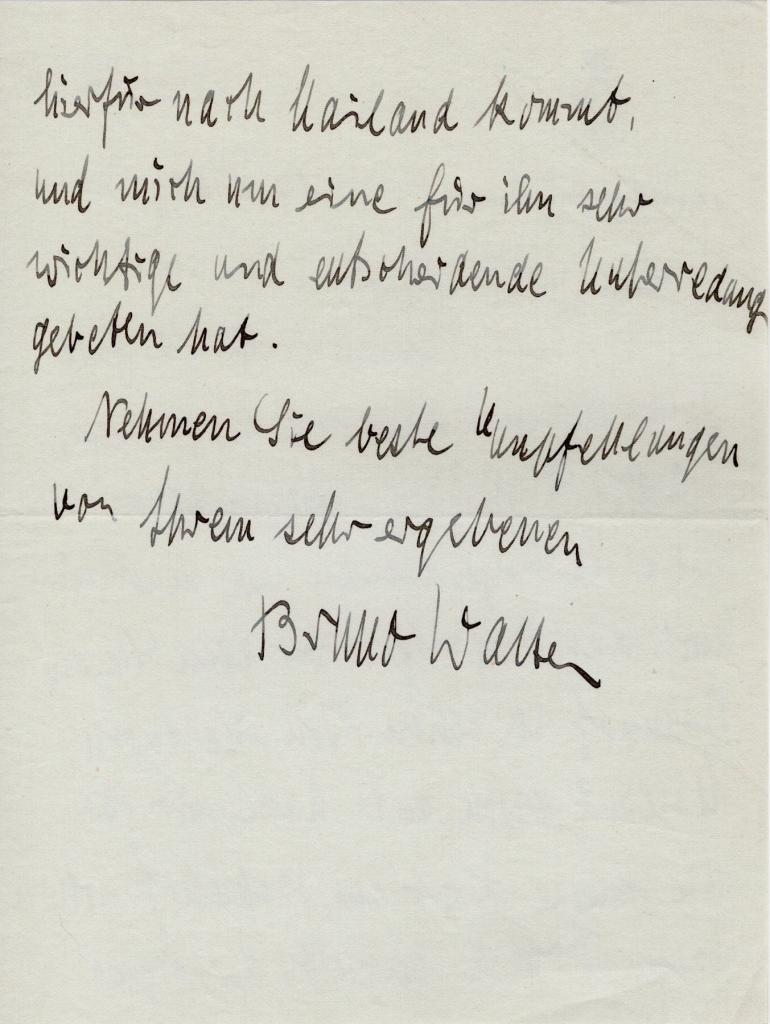 hierfür nach Mailand kommt,
und mich um eine für ihn sehr
wichtige und entscheidende Unterredung
gebeten hat.
Nehmen Sie beste Empfehlungen
von Ihrem sehr ergebenen
Bruno Walter